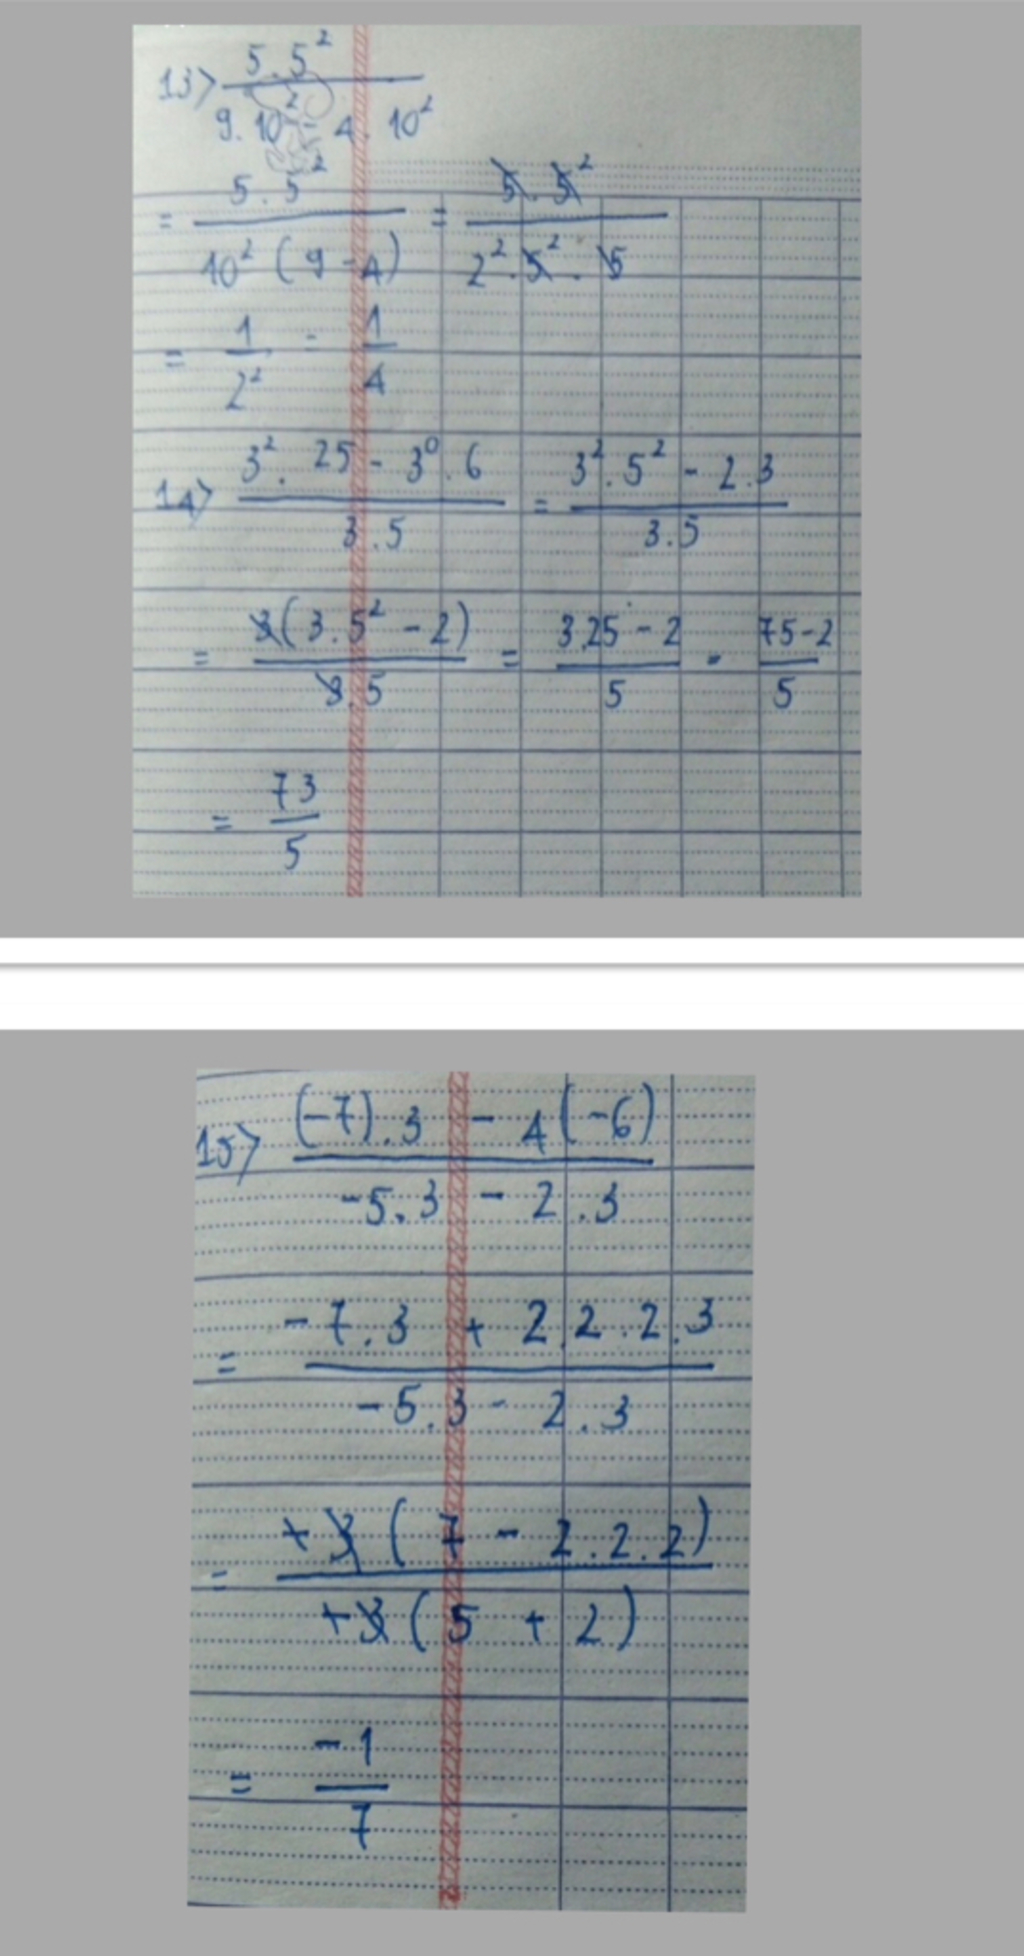 13> 5.5² / 9.10² - 4.10²
= 5.5² / 10² (9-4) = 5.5² / 2².5².5
= 1 / 2² = 1 / 4
14> 3².25 - 3⁰.6 / 3.5 = 3².5² - 2.3 / 3.5
= 3(3.5² - 2) / 3.5 = 3.25 - 2 / 5 = 75-2 / 5
= 73 / 5
15> (-7).3 - 4(-6) / -5.3 - 2.3
= -7.3 + 2.2.2.3 / -5.3 - 2.3
= +3(7 - 2.2.2) / +3(5 + 2)
= -1 / 7